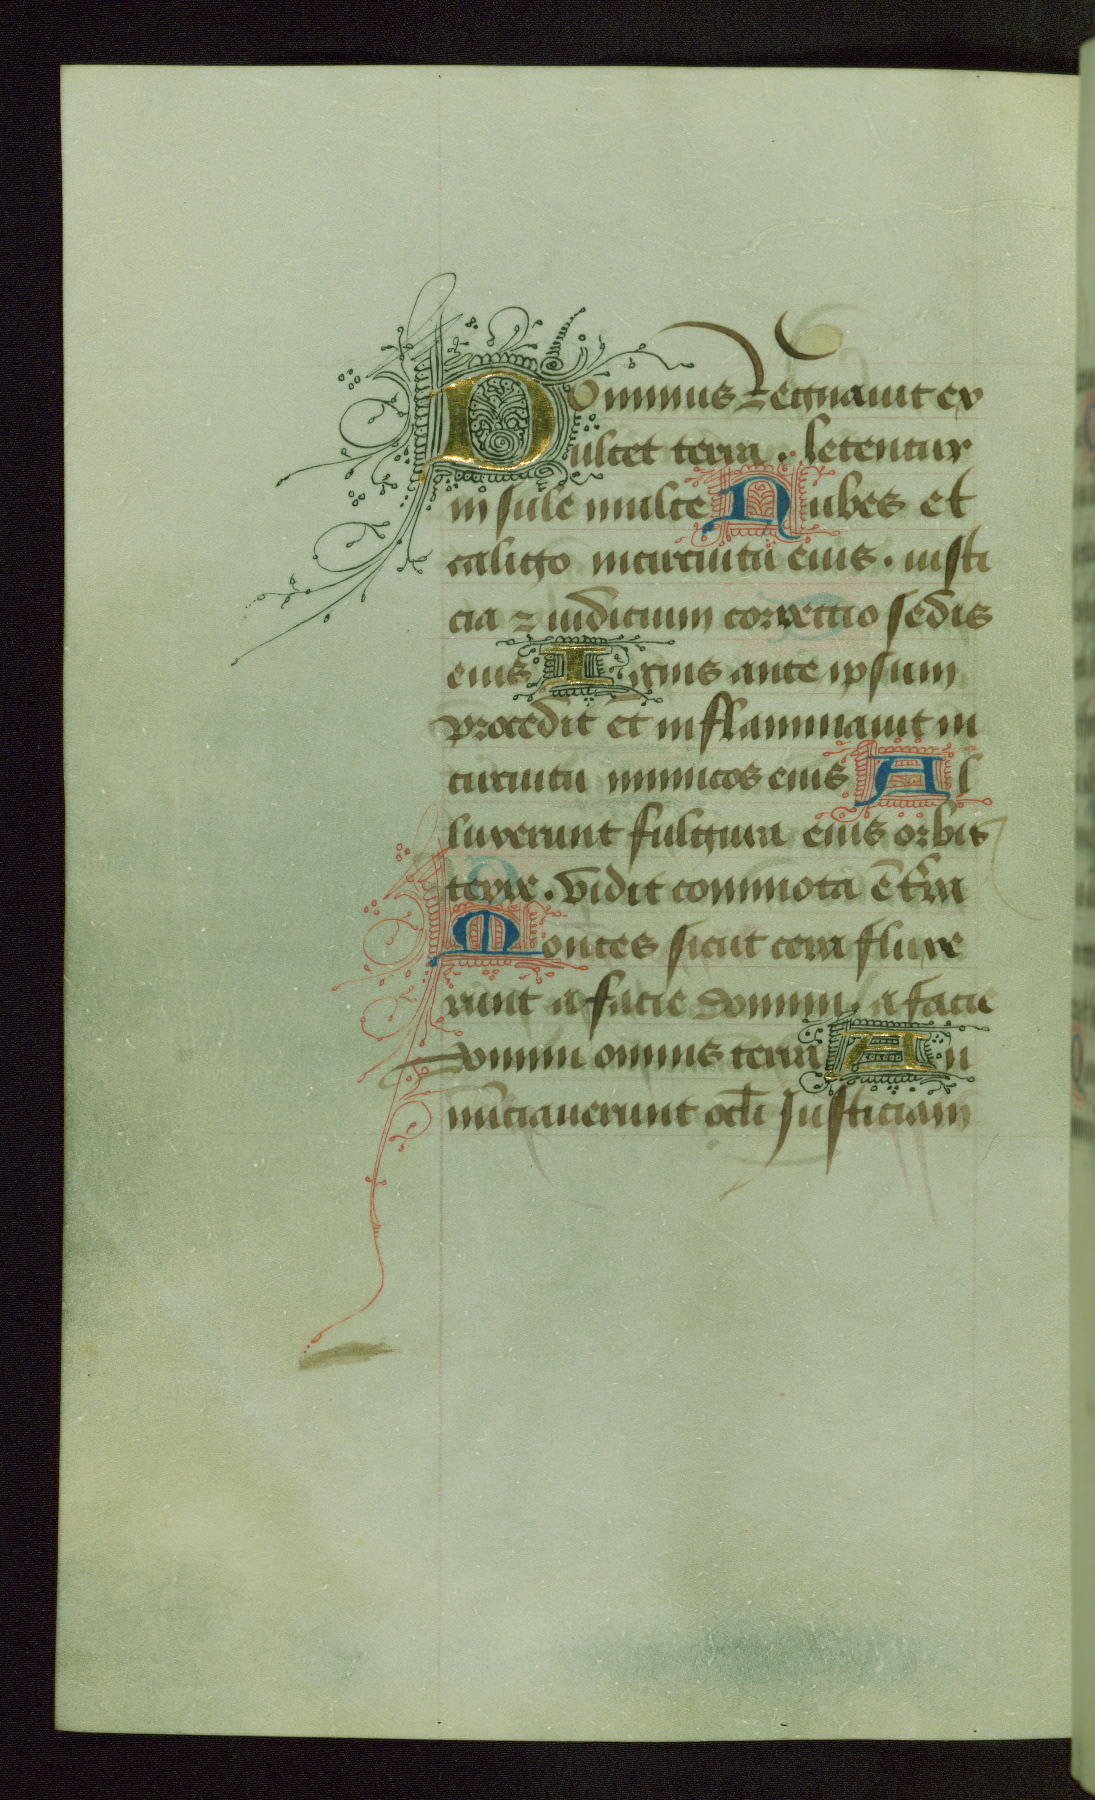 Dominus Regnauit ex
ultet terra . letentur
insule multe Nubes et
caligo incircuitu eius . iusti
cia ⁊ iudicium correctio sedis
eius Ignis ante ipsum
procedit et inflammauit in
circuitu inimicos eius Al
luxerunt fulgura eius orbis
terre . vidit commota ē t̄ra
Montes sicut cera fluxe
runt a facie domini . a facie
domini omnis terra An
nūciauerunt celi Justiciam